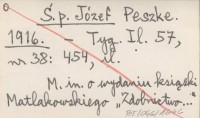 Ś.p. Józef Peszke.
1916. — Tyg. Il. 57,
nr 38: 454, il.
M. in. o wydaniu książki
Matlakowskiego "Zdobnictwo..."